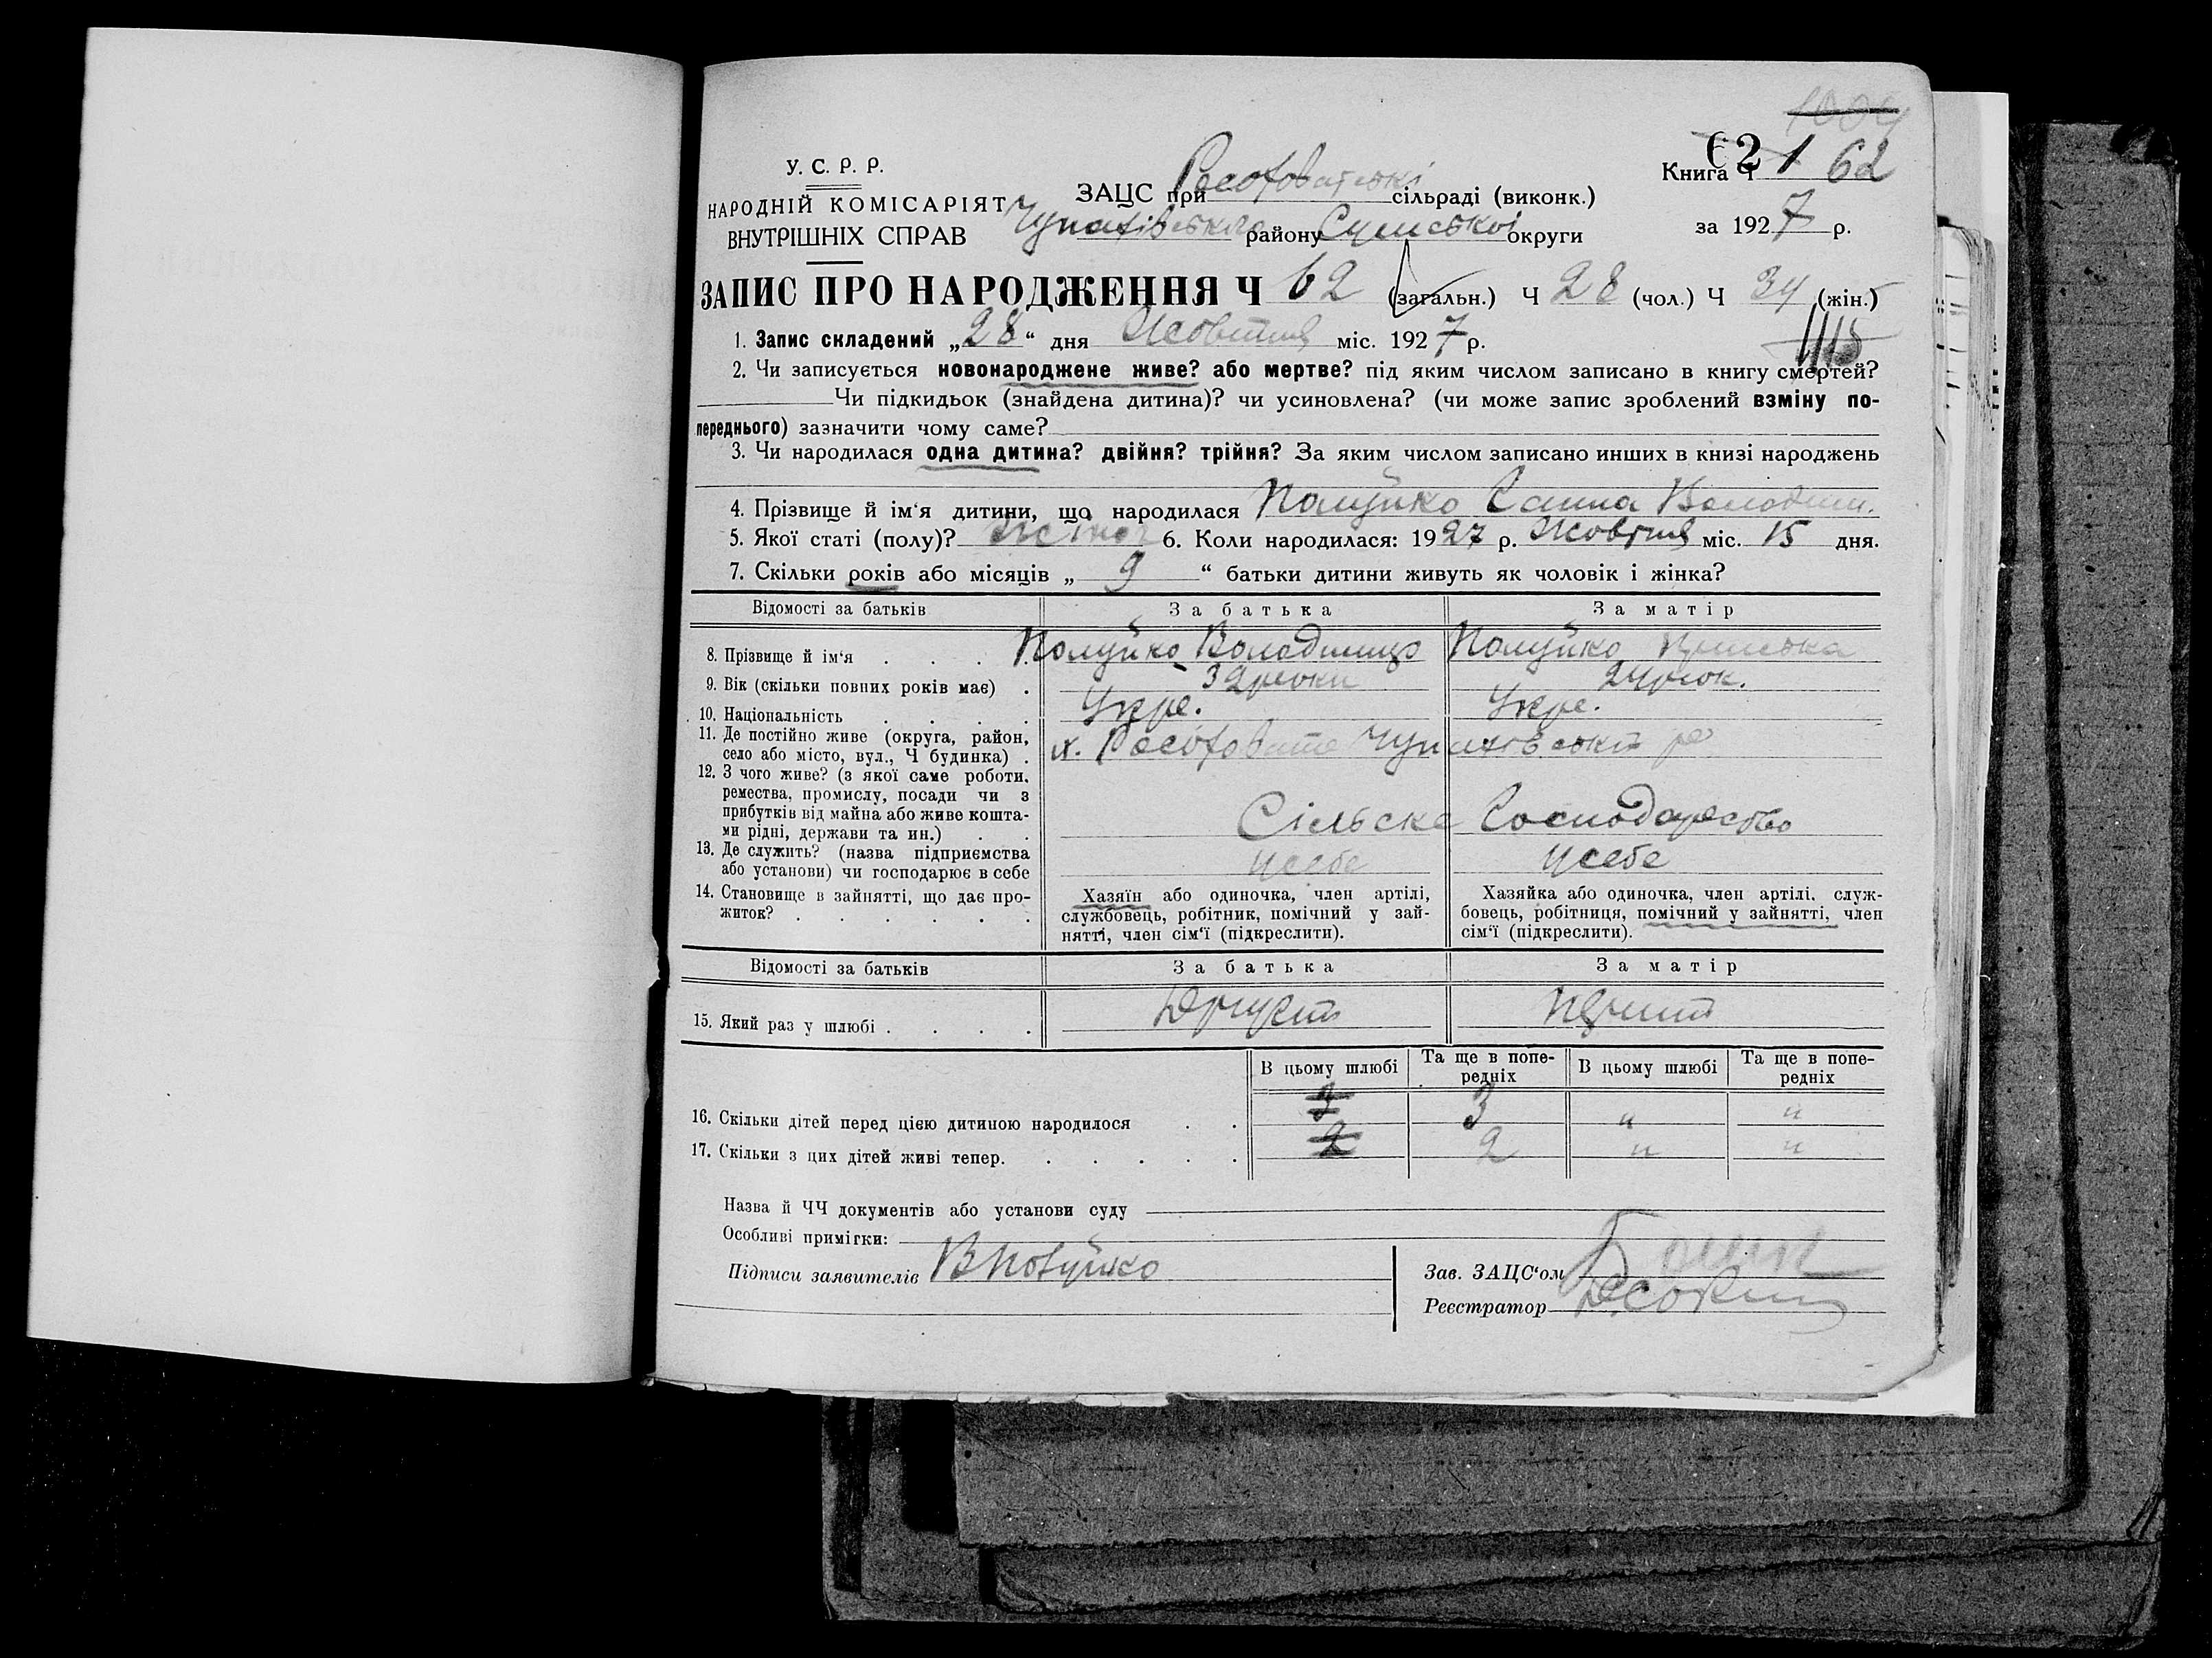 62
Книга Ч 1 62
У. С. Р. Р.
НАРОДНІЙ КОМІСАРІЯТ
ВНУТРІШНІХ СПРАВ
ЗАЦС при сільраді (виконк.)
Чупахівського району Сумської округи
за 1927 р.
ЗАПИС ПРО НАРОДЖЕННЯ Ч 62 (загальн.) Ч 28 (чол.) Ч 34 (жін.)
1. Запис складений „28“ дня Жовтня міс. 1927 р.
2. Чи записується новонароджене живе? або мертве? під яким числом записано в книгу смертей?
Чи підкидьок (знайдена дитина)? чи усиновлена? (чи може запис зроблений взміну по-
переднього) зазначити чому саме?
3. Чи народилася одна дитина? двійня? трійня? За яким числом записано инших в книзі народжень
4. Прізвище й ім‘я дитини, що народилася Полуйко Ганна Володим.
5. Якої статі (полу)? 6. Коли народилася: 1927 р. Жовтня міс. 15 дня.
7. Скільки років або місяців „ 9 “ батьки дитини живуть як чоловік і жінка?
Відомості за батьків За батька За матір
8. Прізвище й ім‘я . . . . Полуйко Володимир Полуйко
9. Вік (скільки повних років має) . 32 роки 24 рок.
10. Національність . . . . Укр. Укр.
11. Де постійно живе (округа, район,
село або місто, вул., Ч будинка) . х. Чупахівськ
12. З чого живе? (з якої саме роботи,
ремества, промислу, посади чи з
прибутків від майна або живе кошта-
ми рідні, держави та ин.) . . Сільске Господарство
13. Де служить? (назва підприємства
або установи) чи господарює в себе Усебе Усебе
14. Становище в зайнятті, що дає про-
житок? . . . . . .
Хазяїн або одиночка, член артілі,
службовець, робітник, помічний у зай-
нятті, член сім‘ї (підкреслити).
Хазяйка або одиночка, член артілі, служ-
бовець, робітниця, помічний у зайнятті, член
сім‘ї (підкреслити).
Відомості за батьків За батька За матір
15. Який раз у шлюбі . . . .
В цьому шлюбі Та ще в попе-
редніх В цьому шлюбі Та ще в попе-
редніх
16. Скільки дітей перед цією дитиною народилося . . 3 3 " "
17. Скільки з цих дітей живі тепер. . . . . . 2 2 " "
Назва й ЧЧ документів або установи суду
Особливі примітки:
Підписи заявителів
Зав. ЗАЦС‘ом
Реєстратор